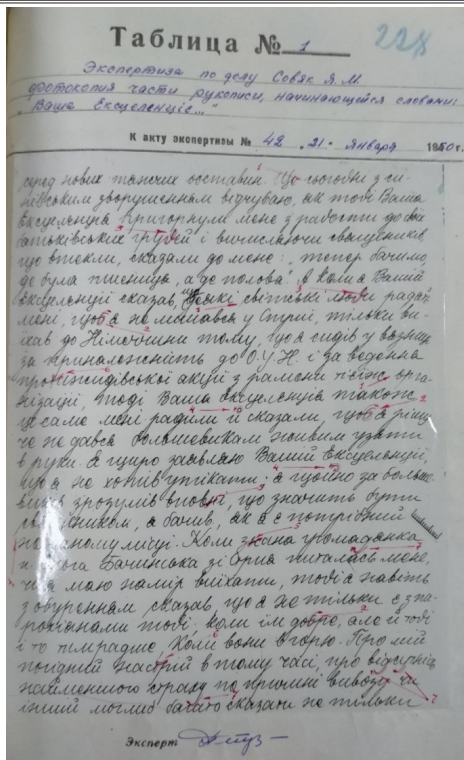 228
Таблица № 1
Экспертиза по делу Совяк Я.М.
фотокопия части рукописи, начинающейся словами:
"Ваша Ексцеленціє..."
К акту экспертизы № 42 "21" января 1950г.
серед нових тяжчих обставин. Що сьогодні з си-
нівським зворушенням відчуваю, як тоді Ваша
Ексцеленція пригорнули мене з радости до своїх
батьківських грудей і вичисляючи священиків,
що втекли, сказали до мене: "тепер бачимо,
де була пшениця, а де полова". А коли я Вашій
Ексцеленції сказав, що деякі світські люди радять
мені, щоб я не лишався у Стрию, тільки ви-
їхав до Німеччини тому, що я сидів у вязниці
за приналежність до О.У.Н. і за ведення
протижидівської акції з рамени тієїж орга-
нізації, тоді Ваша Ексцеленція також
це саме мені радили й сказали, щоб я ріши-
че не давсь большевикам живим узяти
в руки. Я щиро заявляю Вашій Ексцеленції,
що я не хотів утікати; я щойно за больше-
виків зрозумів вповні, що значить бути
священиком, я бачив, як я є потрібний
на своному місці. Коли знана громадянка
Бачинська зі Стрия питалась мене,
чи я маю намір виїхати, тоді я навіть
з обуренням сказав, що я не тільки є з па-
рохіянами тоді коли їм добре, але й тоді
і то тим радше, коли вони в горю. Про мій
погідний настрій в тому часі, про відсутність
найменшого страху по причині вивозу чи
інший могли б багато сказати не тільки
Эксперт